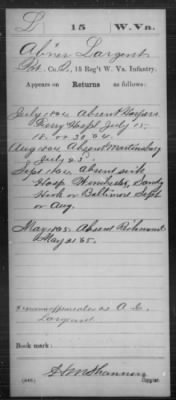 L 15 W. Va.
Abner Largent
Pvt., Co. D, 15 Reg't W. Va. Infantry.
Appears on Returns as follows:
July 1864 Absent Harpers
Ferry Hospl July 15,
Aug 1864 Absent Martinsburg
July 25
Sept 1864 Absent sick
Hosp Winchester, Sandy
Hook or Baltimore Sept
or Aug.
May 1865 Absent Richmond
May 21 65.
Name appears also as A. L.
Largent
Book mark:
(546) Copyist.